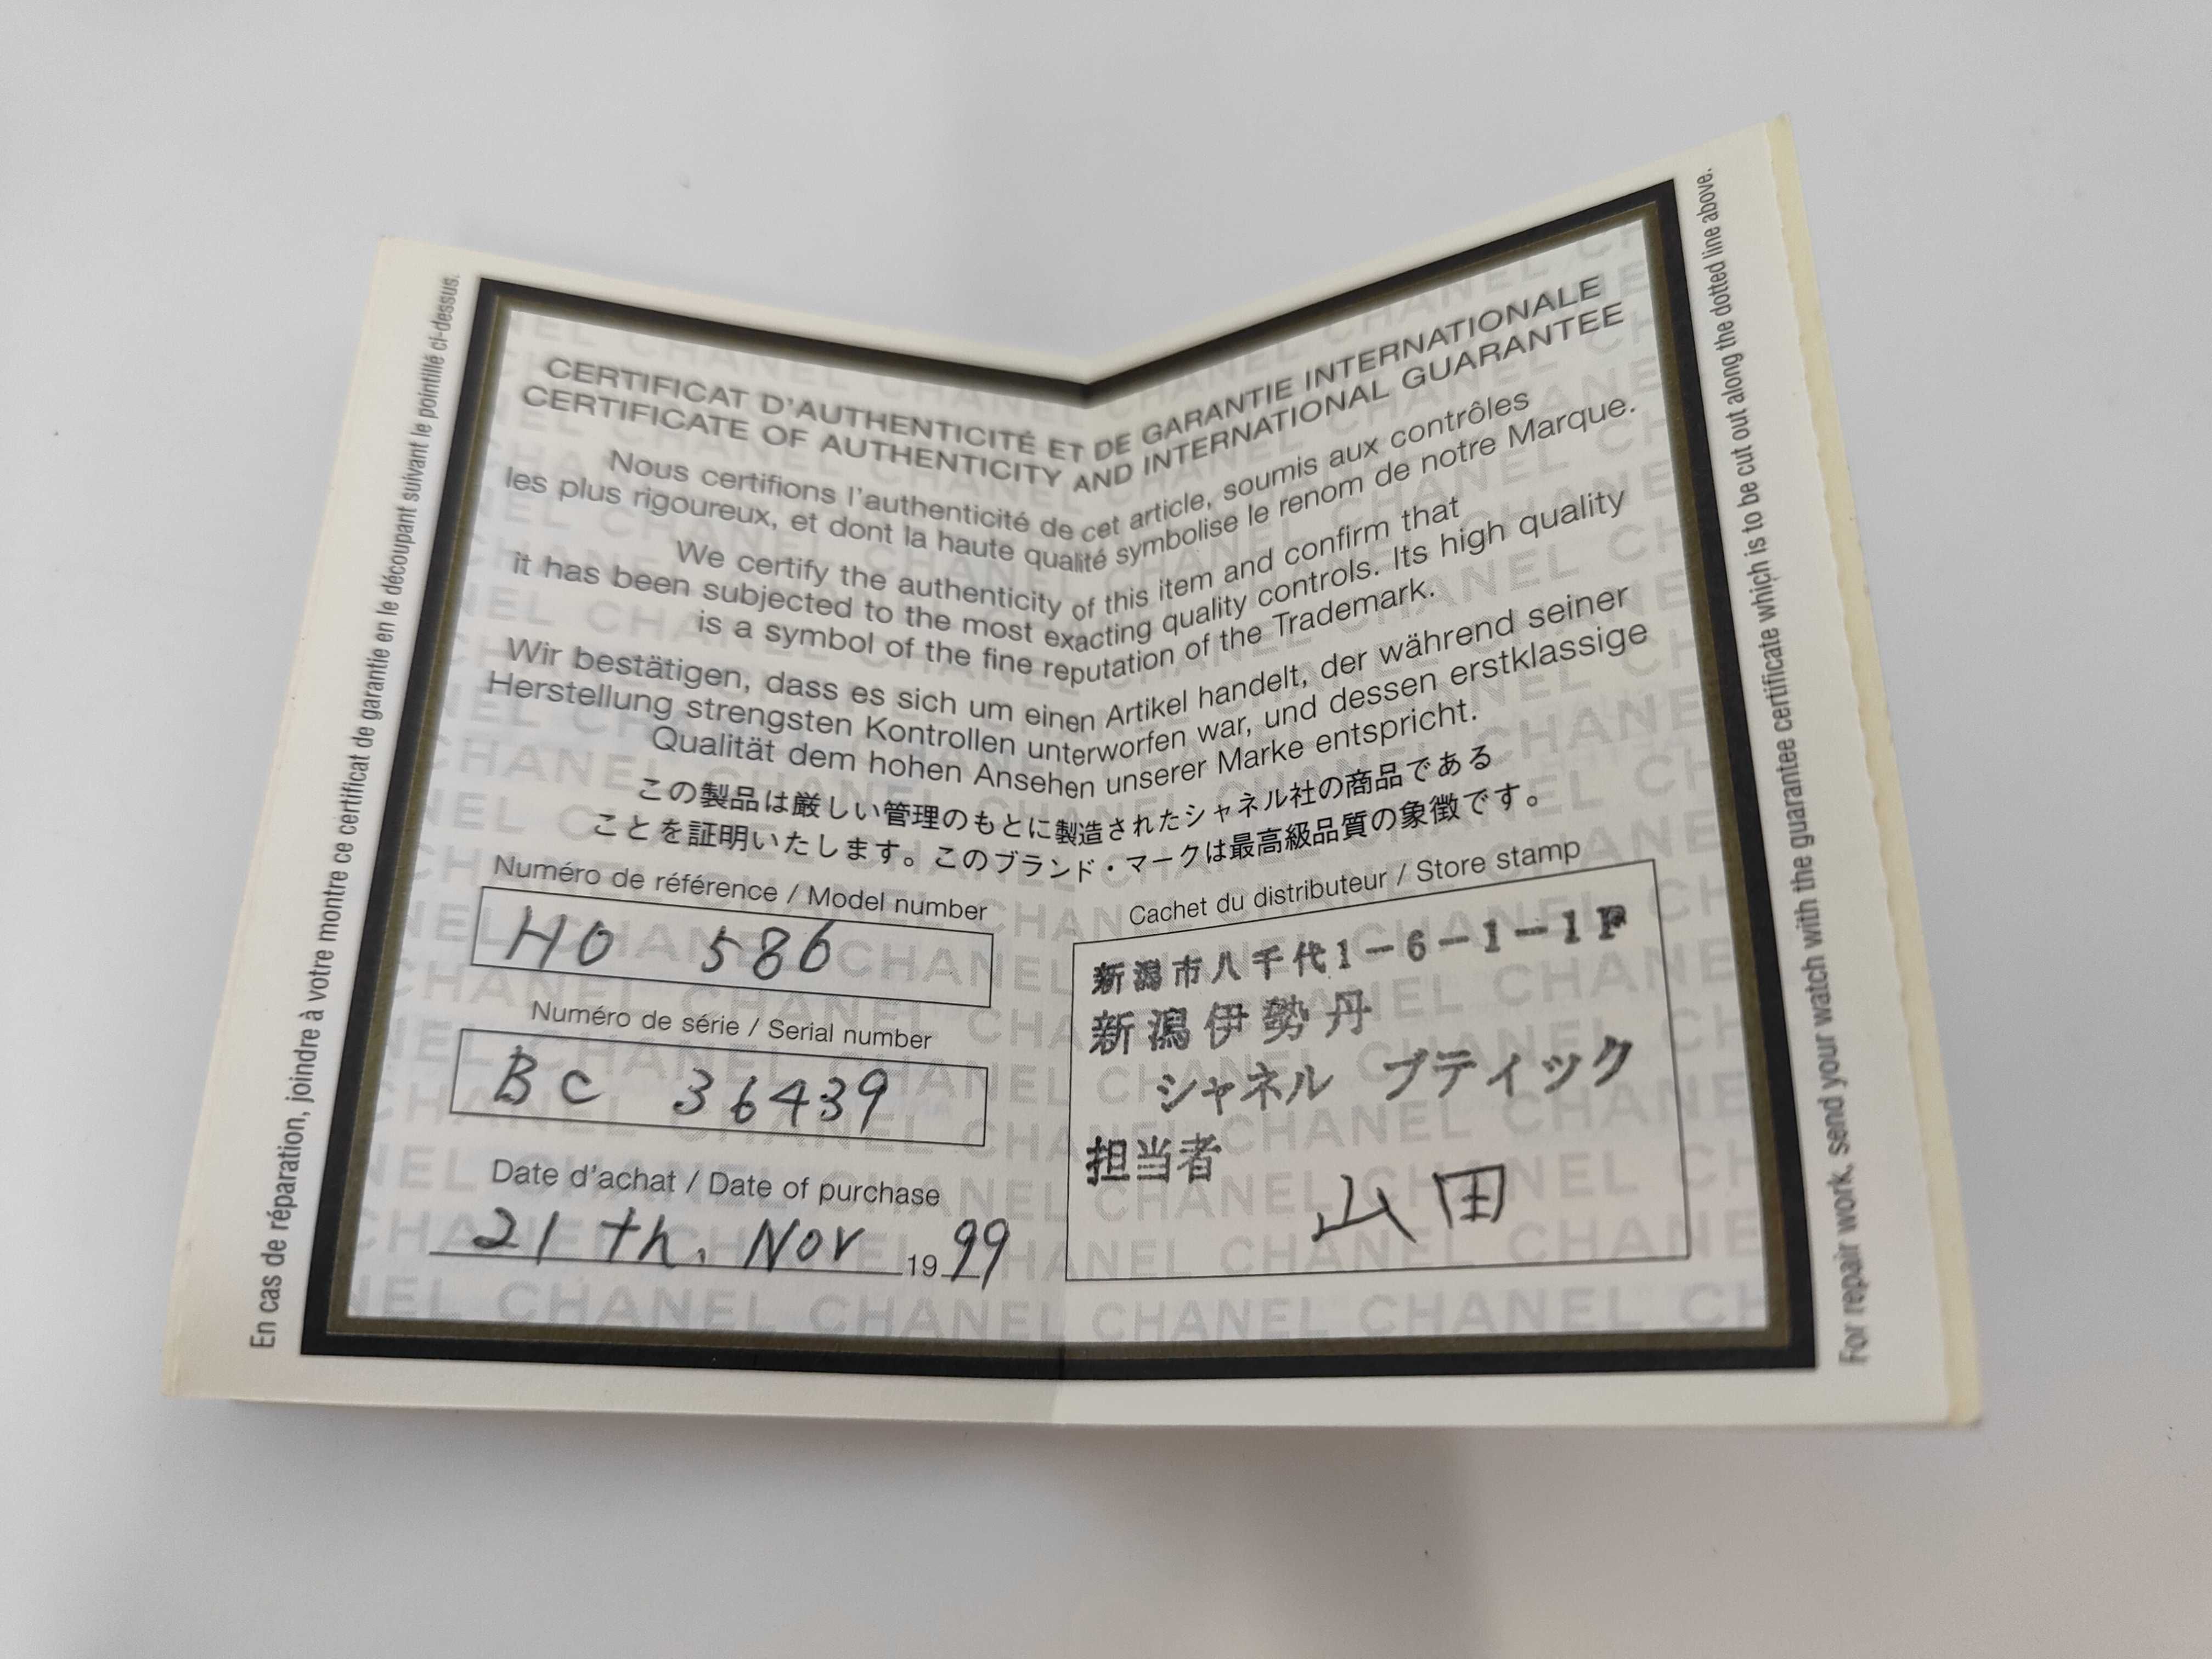 En cas de réparation, joindre à votre montre ce certificat de garantie en le découpant suivant le pointillé ci-dessus.
CERTIFICAT D'AUTHENTICITÉ ET DE GARANTIE INTERNATIONALE
CERTIFICATE OF AUTHENTICITY AND INTERNATIONAL GUARANTEE
Nous certifions l'authenticité de cet article, soumis aux contrôles
les plus rigoureux, et dont la haute qualité symbolise le renom de notre Marque.
We certify the authenticity of this item and confirm that
it has been subjected to the most exacting quality controls. Its high quality
is a symbol of the fine reputation of the Trademark.
Wir bestätigen, dass es sich um einen Artikel handelt, der während seiner
Herstellung strengsten Kontrollen unterworfen war, und dessen erstklassige
Qualität dem hohen Ansehen unserer Marke entspricht.
この製品は厳しい管理のもとに製造されたシャネル社の商品である
ことを証明いたします。このブランド・マークは最高級品質の象徴です。
Numéro de référence / Model number
H0 586
Numéro de série / Serial number
BC 36439
Date d'achat / Date of purchase
21 th. Nov 1999
Cachet du distributeur / Store stamp
新潟市八千代1-6-1-1F
新潟伊勢丹
シャネル ブティック
担当者
山田
For repair work, send your watch with the guarantee certificate which is to be cut out along the dotted line above.